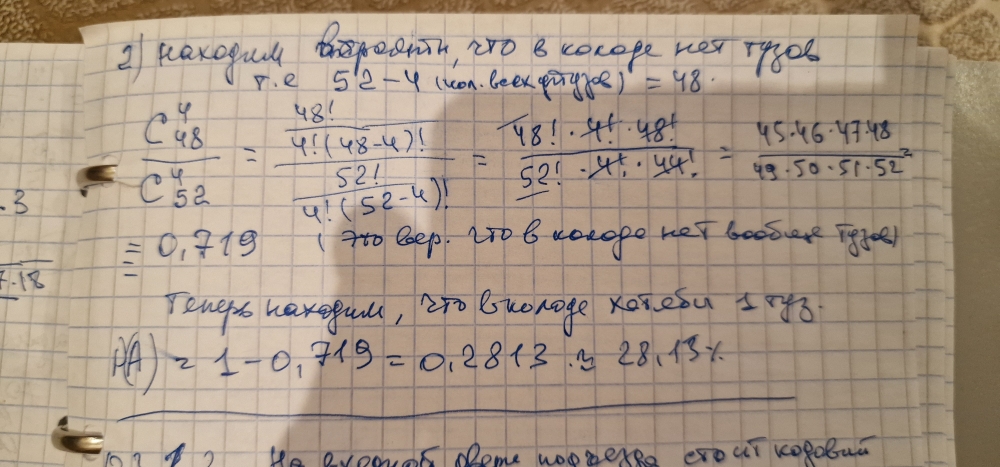 .3
7.18
2) Находим вероятн, что в колоде нет тузов
т.е 52-4 (кол. всех тузов) = 48.
C⁴₄₈ / C⁴₅₂ = (48! / 4!(48-4)!) / (52! / 4!(52-4)!) = 48! · 4! · 48! / 52! · 4! · 44! = 45·46·47·48 / 49·50·51·52 =
= 0,719 (это вер. что в колоде нет вообще тузов)
Теперь находим, что в колоде хотябы 1 туз.
P(A) = 1-0,719 = 0,2813 ≈ 28,13%
На входной двери подъезда стоит кодовый